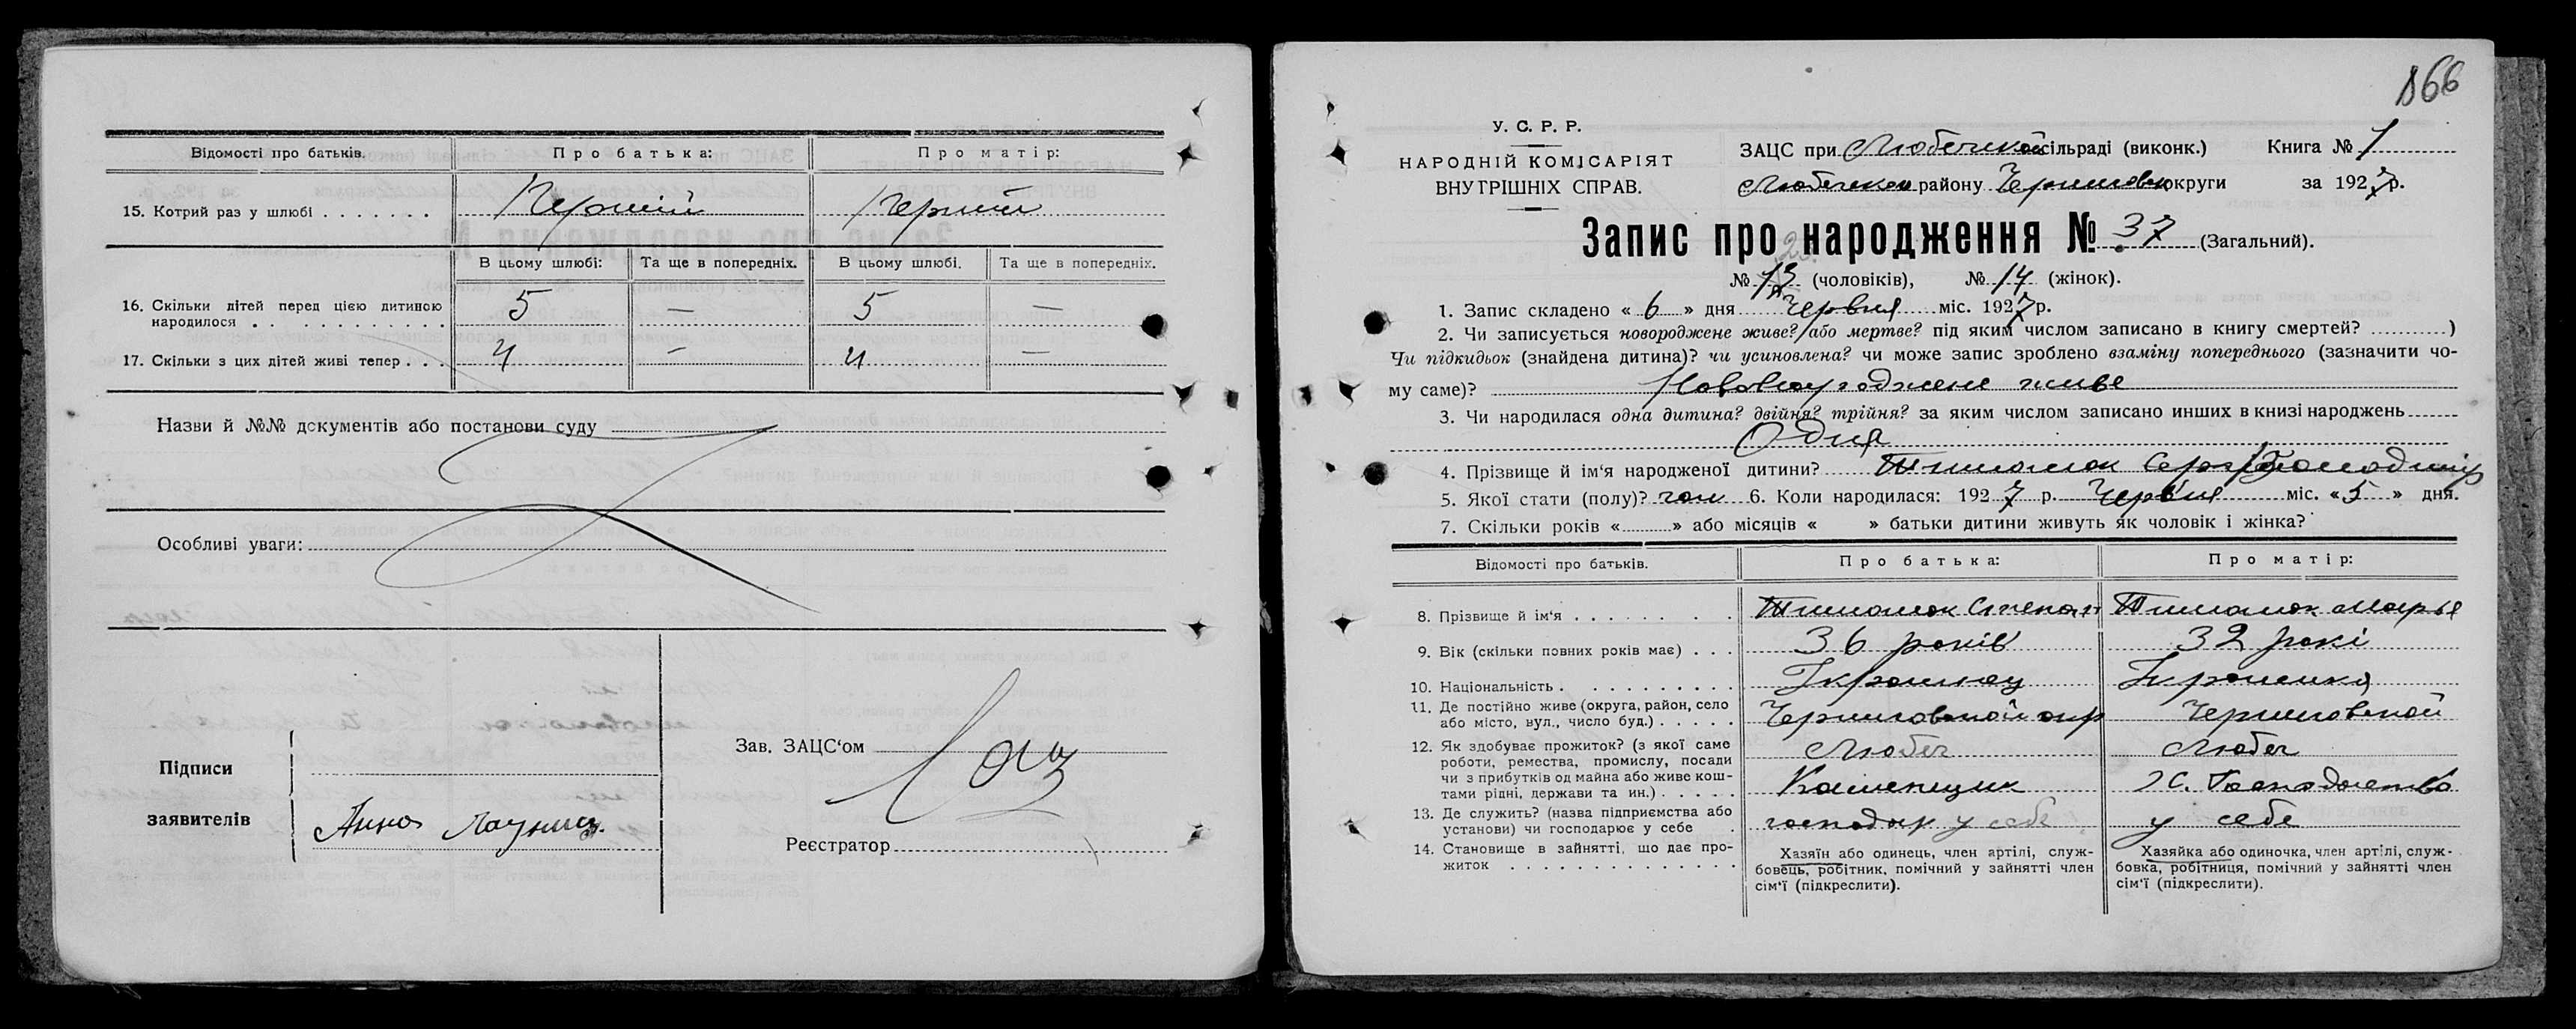 Відомості про батьків.
Про батька:
Про матір:
15. Котрий раз у шлюбі
В цьому шлюбі:
Та ще в попередніх.
В цьому шлюбі.
Та ще в попередніх.
16. Скільки дітей перед цією дитиною
народилося
5 — 5 —
17. Скільки з цих дітей живі тепер
4 — 4 —
Назви й №№ документів або постанови суду
Особливі уваги:
Підписи
заявителів
Анна
Зав. ЗАЦС'ом
Реєстратор
166
У. С. Р. Р.
НАРОДНІЙ КОМІСАРІЯТ
ВНУТРІШНІХ СПРАВ.
ЗАЦС при Любечской сільраді (виконк.) Книга № 1
Любечском району округи за 1927 р.
Запис про народження № 37 (Загальний).
№ (чоловіків), № 14 (жінок).
1. Запис складено « 6 » дня Червня міс. 1927 р.
2. Чи записується новороджене живе? або мертве? під яким числом записано в книгу смертей? )
Чи підкидьок (знайдена дитина)? чи усиновлена? чи може запис зроблено взаміну попереднього (зазначити чо-
му саме)? живе
3. Чи народилася одна дитина? двійня? трійня? за яким числом записано инших в книзі народжень
Одна
4. Прізвище й ім'я народженої дитини?
5. Якої стати (полу)? чол 6. Коли народилася: 1927 р. Червня міс. «5» дня.
7. Скільки років « » або місяців « » батьки дитини живуть як чоловік і жінка?
Відомості про батьків.
Про батька:
Про матір:
8. Прізвище й ім'я
Степан
Марья
9. Вік (скільки повних років має)
36 років
32 рокі
10. Національність
Украинец
Украинка
11. Де постійно живе (округа, район, село
або місто, вул., число буд.)
Черниговской окр
Черниговской
Любеч
Любеч
12. Як здобуває прожиток? (з якої саме
роботи, ремества, промислу, посади
чи з прибутків од майна або живе кош-
тами рідні, держави та ин.)
13. Де служить? (назва підприємства або
установи) чи господарює у себе
господар у себе
у себе
14. Становище в зайнятті, що дає про-
житок
Хазяїн або одинець, член артілі, служ-
бовець, робітник, помічний у зайнятті член
сім'ї (підкреслити).
Хазяйка або одиночка, член артілі, служ-
бовка, робітниця, помічний у зайнятті член
сім'ї (підкреслити).